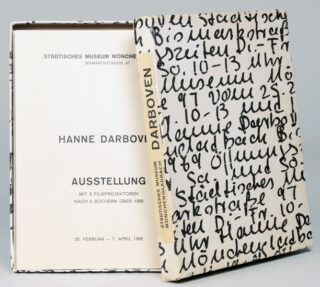 STÄDTISCHES MUSEUM MÖNCHEN
BISMARCKSTRASSE 97
HANNE DARBOVE
AUSSTELLUNG
MIT 6 FILMPROJEKTOREN
NACH 6 BÜCHERN ÜBER 1968
25. FEBRUAR – 7. APRIL 1969
DARBOVEN
STÄDTISCHES MUSEUM
MÖNCHENGLADBACH
oven Städtisch
Bismarckstraß
szeiten Di.-Fr
So. 10-13 Uhr
useum Mön
e 97 vom 25.2
10-13 und
Hanne Darbo
adbach Bis
1969 Öffnungs
Sa. und So
Städtisches M
straße 97
Di.-Fr. 10-
Uhr Hanne D
Mönchenglad